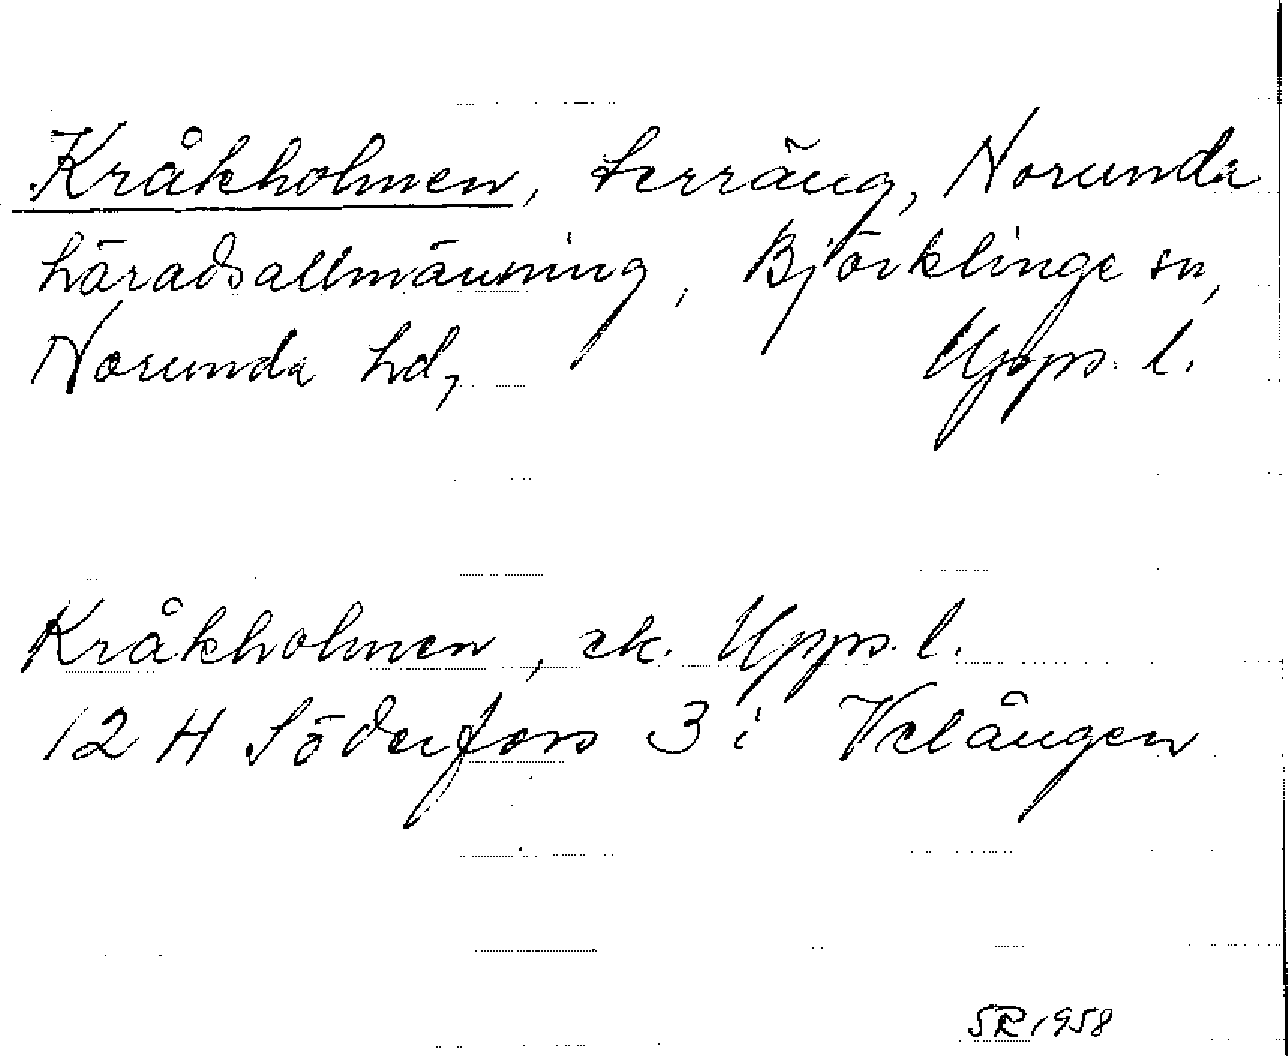 Kråkholmen, terräng, Norunda
häradsallmänning, Björklinge sn,
Norunda hd, Upps. l.
Kråkholmen, ek. Upps. l.
12 H Söderfors 3 i Velången
SR 1958